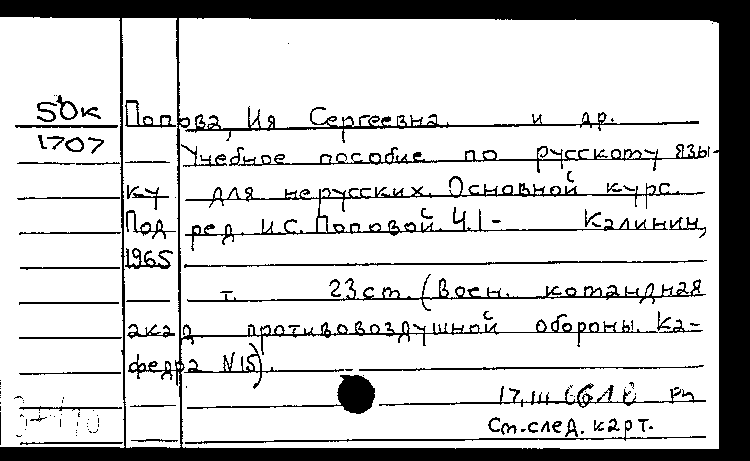 50к Попова, Ия Сергеевна. и др.
1707 Учебное пособие по русскому язы-
ку для нерусских. Основной курс.
Под ред. И.С. Поповой. Ч.1 - Калинин,
1965
т. 23 см. (Воен. командная
акад. противовоздушной обороны. Ка-
федра N15).
17.III
См.след. карт.